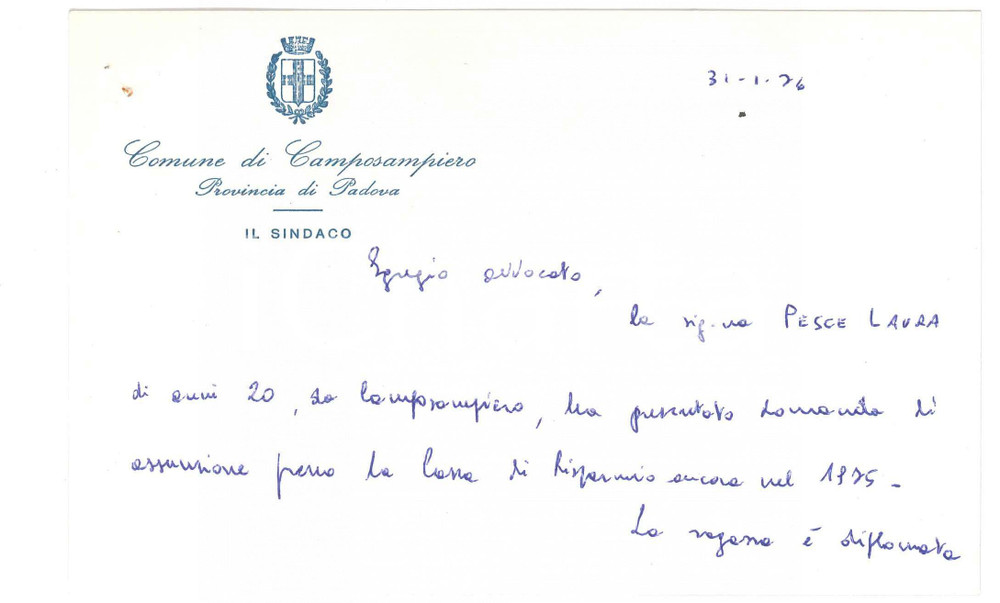 31-1-76
Comune di Camposampiero
Provincia di Padova
IL SINDACO
Egregio avvocato,
la sig.na PESCE LAURA
di anni 20, da Camposampiero, ha presentato domanda di
assunzione presso la Cassa di Risparmio ancora nel 1975 -
La ragazza è diplomata